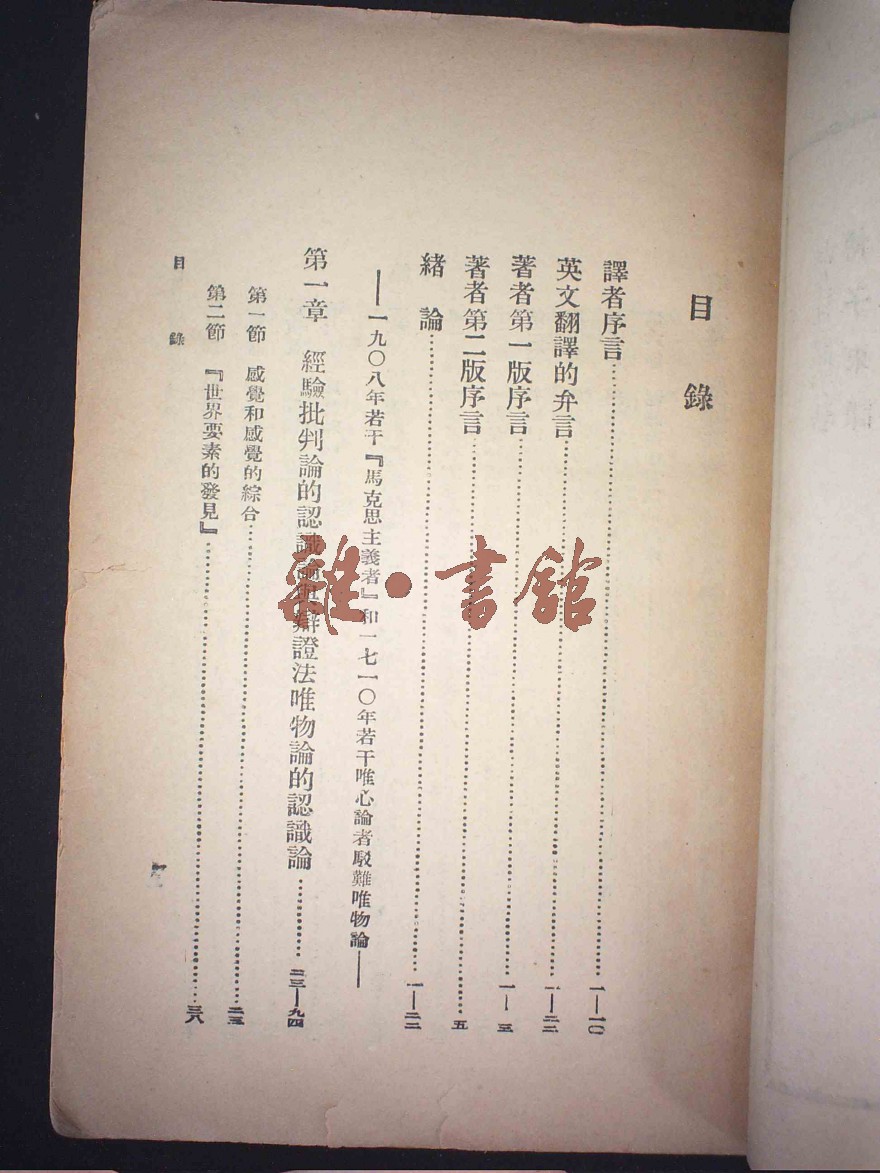 目錄
譯者序言……一—一〇
英文翻譯的弁言……一—二二
著者第一版序言……一—三
著者第二版序言……五
緒論……一—二二
——一九〇八年若干『馬克思主義者』和一七一〇年若干唯心論者駁難唯物論——
第一章 經驗批判論的認識論與辯證法唯物論的認識論……二三—九四
第一節 感覺和感覺的綜合……二三
第二節 『世界要素的發見』……三八
目錄
一
雜·書館